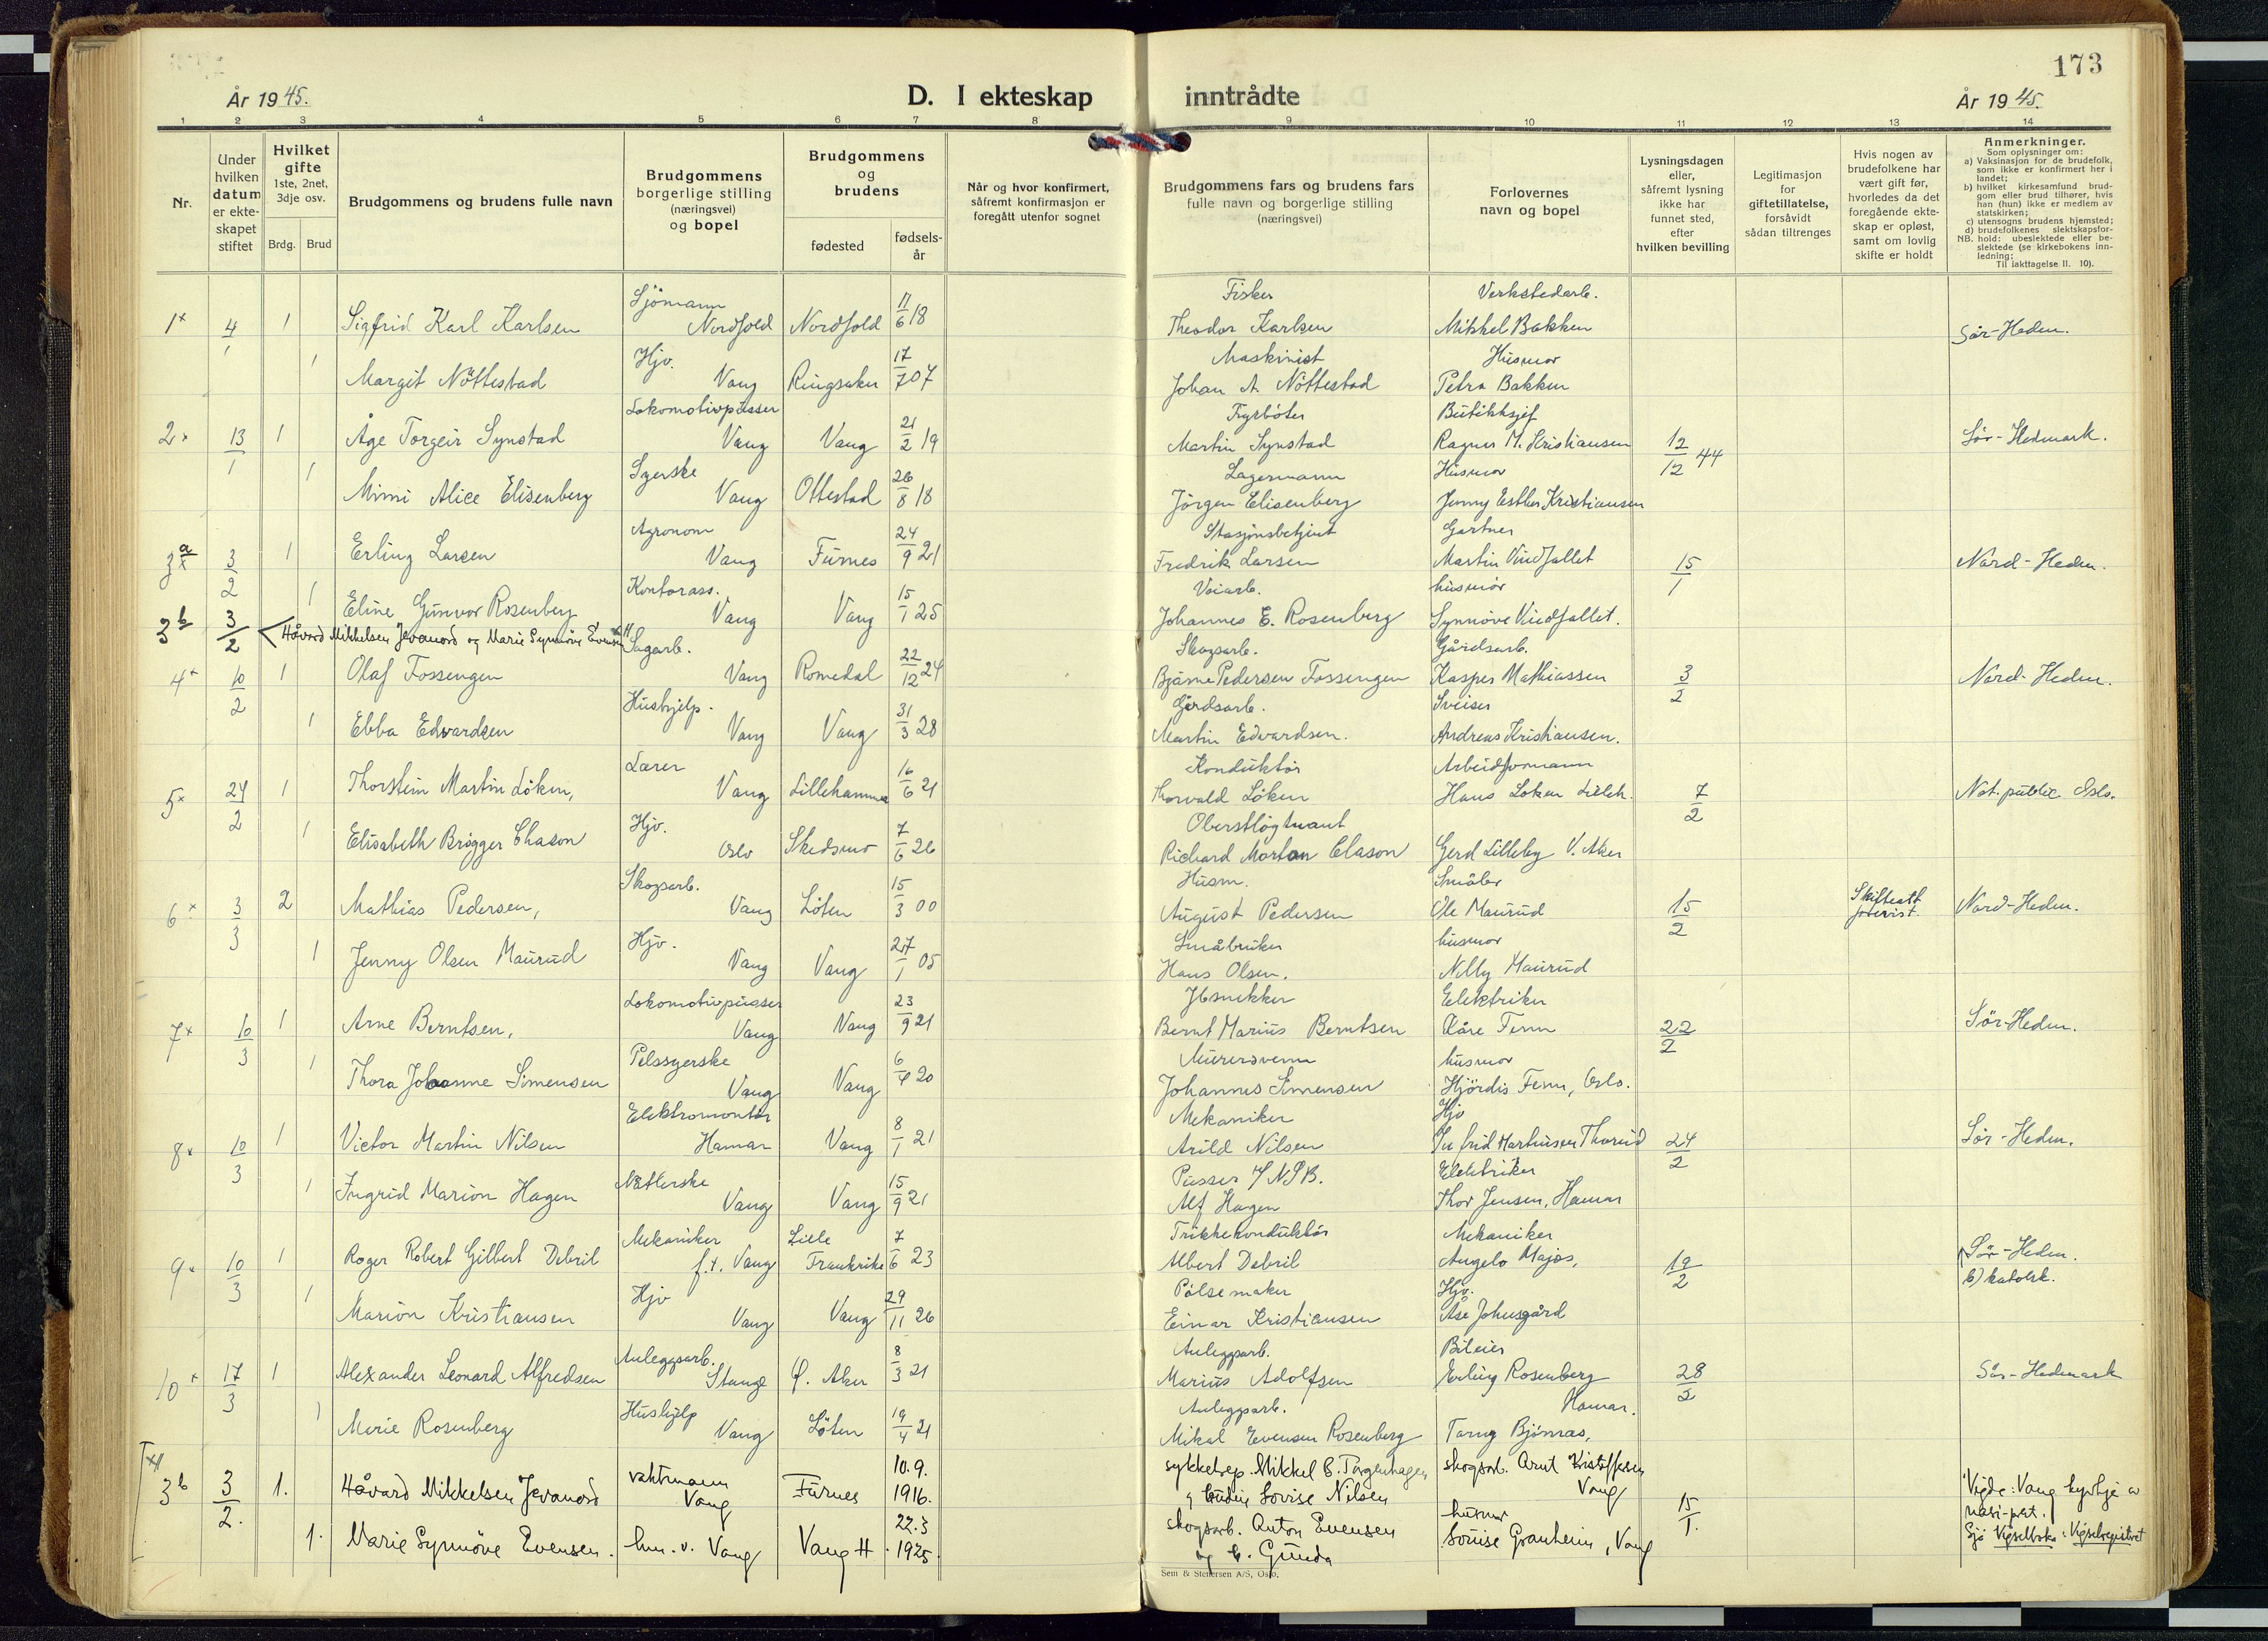 173
År 1945.
D. I ekteskap inntrådte
År 1945.
1 2 3 4 5 6 7 8 9 10 11 12 13 14
Nr.
Under hvilken datum er ekteskapet stiftet
Hvilket gifte 1ste, 2net, 3dje osv.
Brdg. Brud
Brudgommens og brudens fulle navn
Brudgommens borgerlige stilling (næringsvei) og bopel
Brudgommens og brudens
fødested
fødselsår
Når og hvor konfirmert, såfremt konfirmasjon er foregått utenfor sognet
Brudgommens fars og brudens fars fulle navn og borgerlige stilling (næringsvei)
Forlovernes navn og bopel
Lysningsdagen eller, såfremt lysning ikke har funnet sted, efter hvilken bevilling
Legitimasjon for giftetillatelse, forsåvidt sådan tiltrenges
Hvis nogen av brudefolkene har vært gift før, hvorledes da det foregående ekteskap er opløst, samt om lovlig skifte er holdt
Anmerkninger.
Som oplysninger om:
a) Vaksinasjon for de brudefolk, som ikke er konfirmert her i landet;
b) hvilket kirkesamfund brudgom eller brud tilhører, hvis han (hun) ikke er medlem av statskirken;
c) utensogns brudens hjemsted;
d) brudefolkenes slektskapsforhold: ubeslektede eller beslektede (se kirkebokens innledning;
NB. Til iakttagelse II. 10).
Sjömann Fisker Verkstedarb.
1x 4/1 1 Sigfrid Karl Karlsen Nordfold Nordfold 11/6 18 Theodor Karlsen Mikkel Bakken Sør-Hedm.
Hjv. Maskinist Husmor
1 Margit Nöttestad Vang Ringsaker 17/7 07 Johan A. Nöttestad Petra Bakken
Lokomotivpusser Fyrböter Butikksjef
2x 13/1 1 Åge Torgeir Synstad Vang Vang 21/2 19 Martin Synstad Ragnar M. Kristiansen 12/12 44 Sør-Hedmark.
Syerske Lagermann Husmor
1 Mimi Alice Elisenberg Vang Ottestad 26/8 18 Jörgen Elisenberg Jenny Esther Kristiansen
Agronom Stasjonsbetjent Gartner
3a x 3/2 1 Erling Larsen Vang Furnes 24/9 21 Fredrik Larsen Martin Vindfallet 15/1 Nord-Hedm.
Kontorass. Veiarb. husmor
1 Eline Gunvor Rosenberg Vang Vang 15/1 25 Johannes E. Rosenberg Synnöve Vindfallet.
3b 3/2 < Håvard Mikkelsen Jevanord og Marie Synnöve Evensen
Sagarb. Skogsarb. Gårdsarb.
4x 10/2 1 Olaf Fossengen Vang Romedal 22/12 24 Bjarne Pedersen Fossengen Kasper Mathiassen 3/2 Nord-Hedm.
Hushjelp. Gårdsarb. Sveiser
1 Ebba Edwardsen Vang Vang 31/3 28 Martin Edwardsen. Andreas Kristiansen.
Lærer Konduktör Arbeidsformann
5x 24/2 1 Thorstein Martin Löken, Vang Lillehammer 16/6 21 Thorvald Löken Hans Löken Lilleh. 7/2 Not. public Oslo.
Hjv. Oberstlöytnant
1 Elisabeth Brögger Chason Oslo Skedsmo 7/6 26 Richard Morton Clason Gerd Lilleby V. Aker
Skogsarb. Husm. Småbr
6x 3/3 2 Mathias Pedersen, Vang Löten 15/3 00 August Pedersen Ole Maurud 15/2 Skifteatt Nord-Hedm.
Hjv. Småbruker husmor
1 Jenny Olsen Maurud Vang Vang 27/1 05 Hans Olsen. Nelly Maurud
Lokomotivpusser Elektriker
7x 10/3 1 Arne Berntsen, Vang Vang 23/9 21 Bernt Marius Berntsen Kåre Fenn 22/2 Sör-Hedm.
Pelssyerske Murersvenn husmor
1 Thora Johanne Simensen Vang Vang 6/4 20 Johannes Simensen Hjördis Fenn, Oslo.
Elektromontör Mekaniker Hjv
8x 10/3 1 Victor Martin Nilsen Hamar Vang 8/1 21 Arild Nilsen Martinsen Thorud 24/2 Sör-Hedm.
Nätlerske Pusser v/ N.S.B. Elektriker
1 Ingrid Marion Hagen Vang Vang 15/9 21 Alf Hagen Thor Jensen, Hamar
Mekaniker Lille Trikkekonduktör Mekaniker
9x 10/3 1 Roger Robert Gilbert Debril f.t. Vang Frankrike 7/6 23 Albert Debril Angelo Majos, 19/2 Sör-Hedm. b) katolsk.
Hjv Pölsemaker Hjv.
1 Marion Kristiansen Vang Vang 29/11 26 Einar Kristiansen Åse Johusgård
Anleggsarb. Anleggsarb. Bileier
10x 17/3 1 Alexander Leonard Alfredsen Stange Ö. Aker 8/3 21 Marius Adolfsen Erling Rosenberg Hamar. 28/2 Sör-Hedmark
Hushjelp Anleggsarb.
1 Merie Rosenberg Vang Löten 19/4 21 Mikal Evensen Rosenberg Bjönnås,
vaktmann 10.9. sykkelrep. Mikkel B. Torgenhagen skogsarb. Arnt Kristoffersen
3b 3/2. 1. Håvard Mikkelsen Jevanord Vang Furnes 1916. Lovise Nilsen Vang 15/1. Vigde: Vang kyrkje
22.3 skogsarb. Anton Evensen husmor
1. Marie Synnöve Evensen. Vang Vang H. 1925. og Gunda Louise Granheim, Vang Sjå Vigselboka: Vigselregistret
Sem & Stenersen A/S, Oslo.